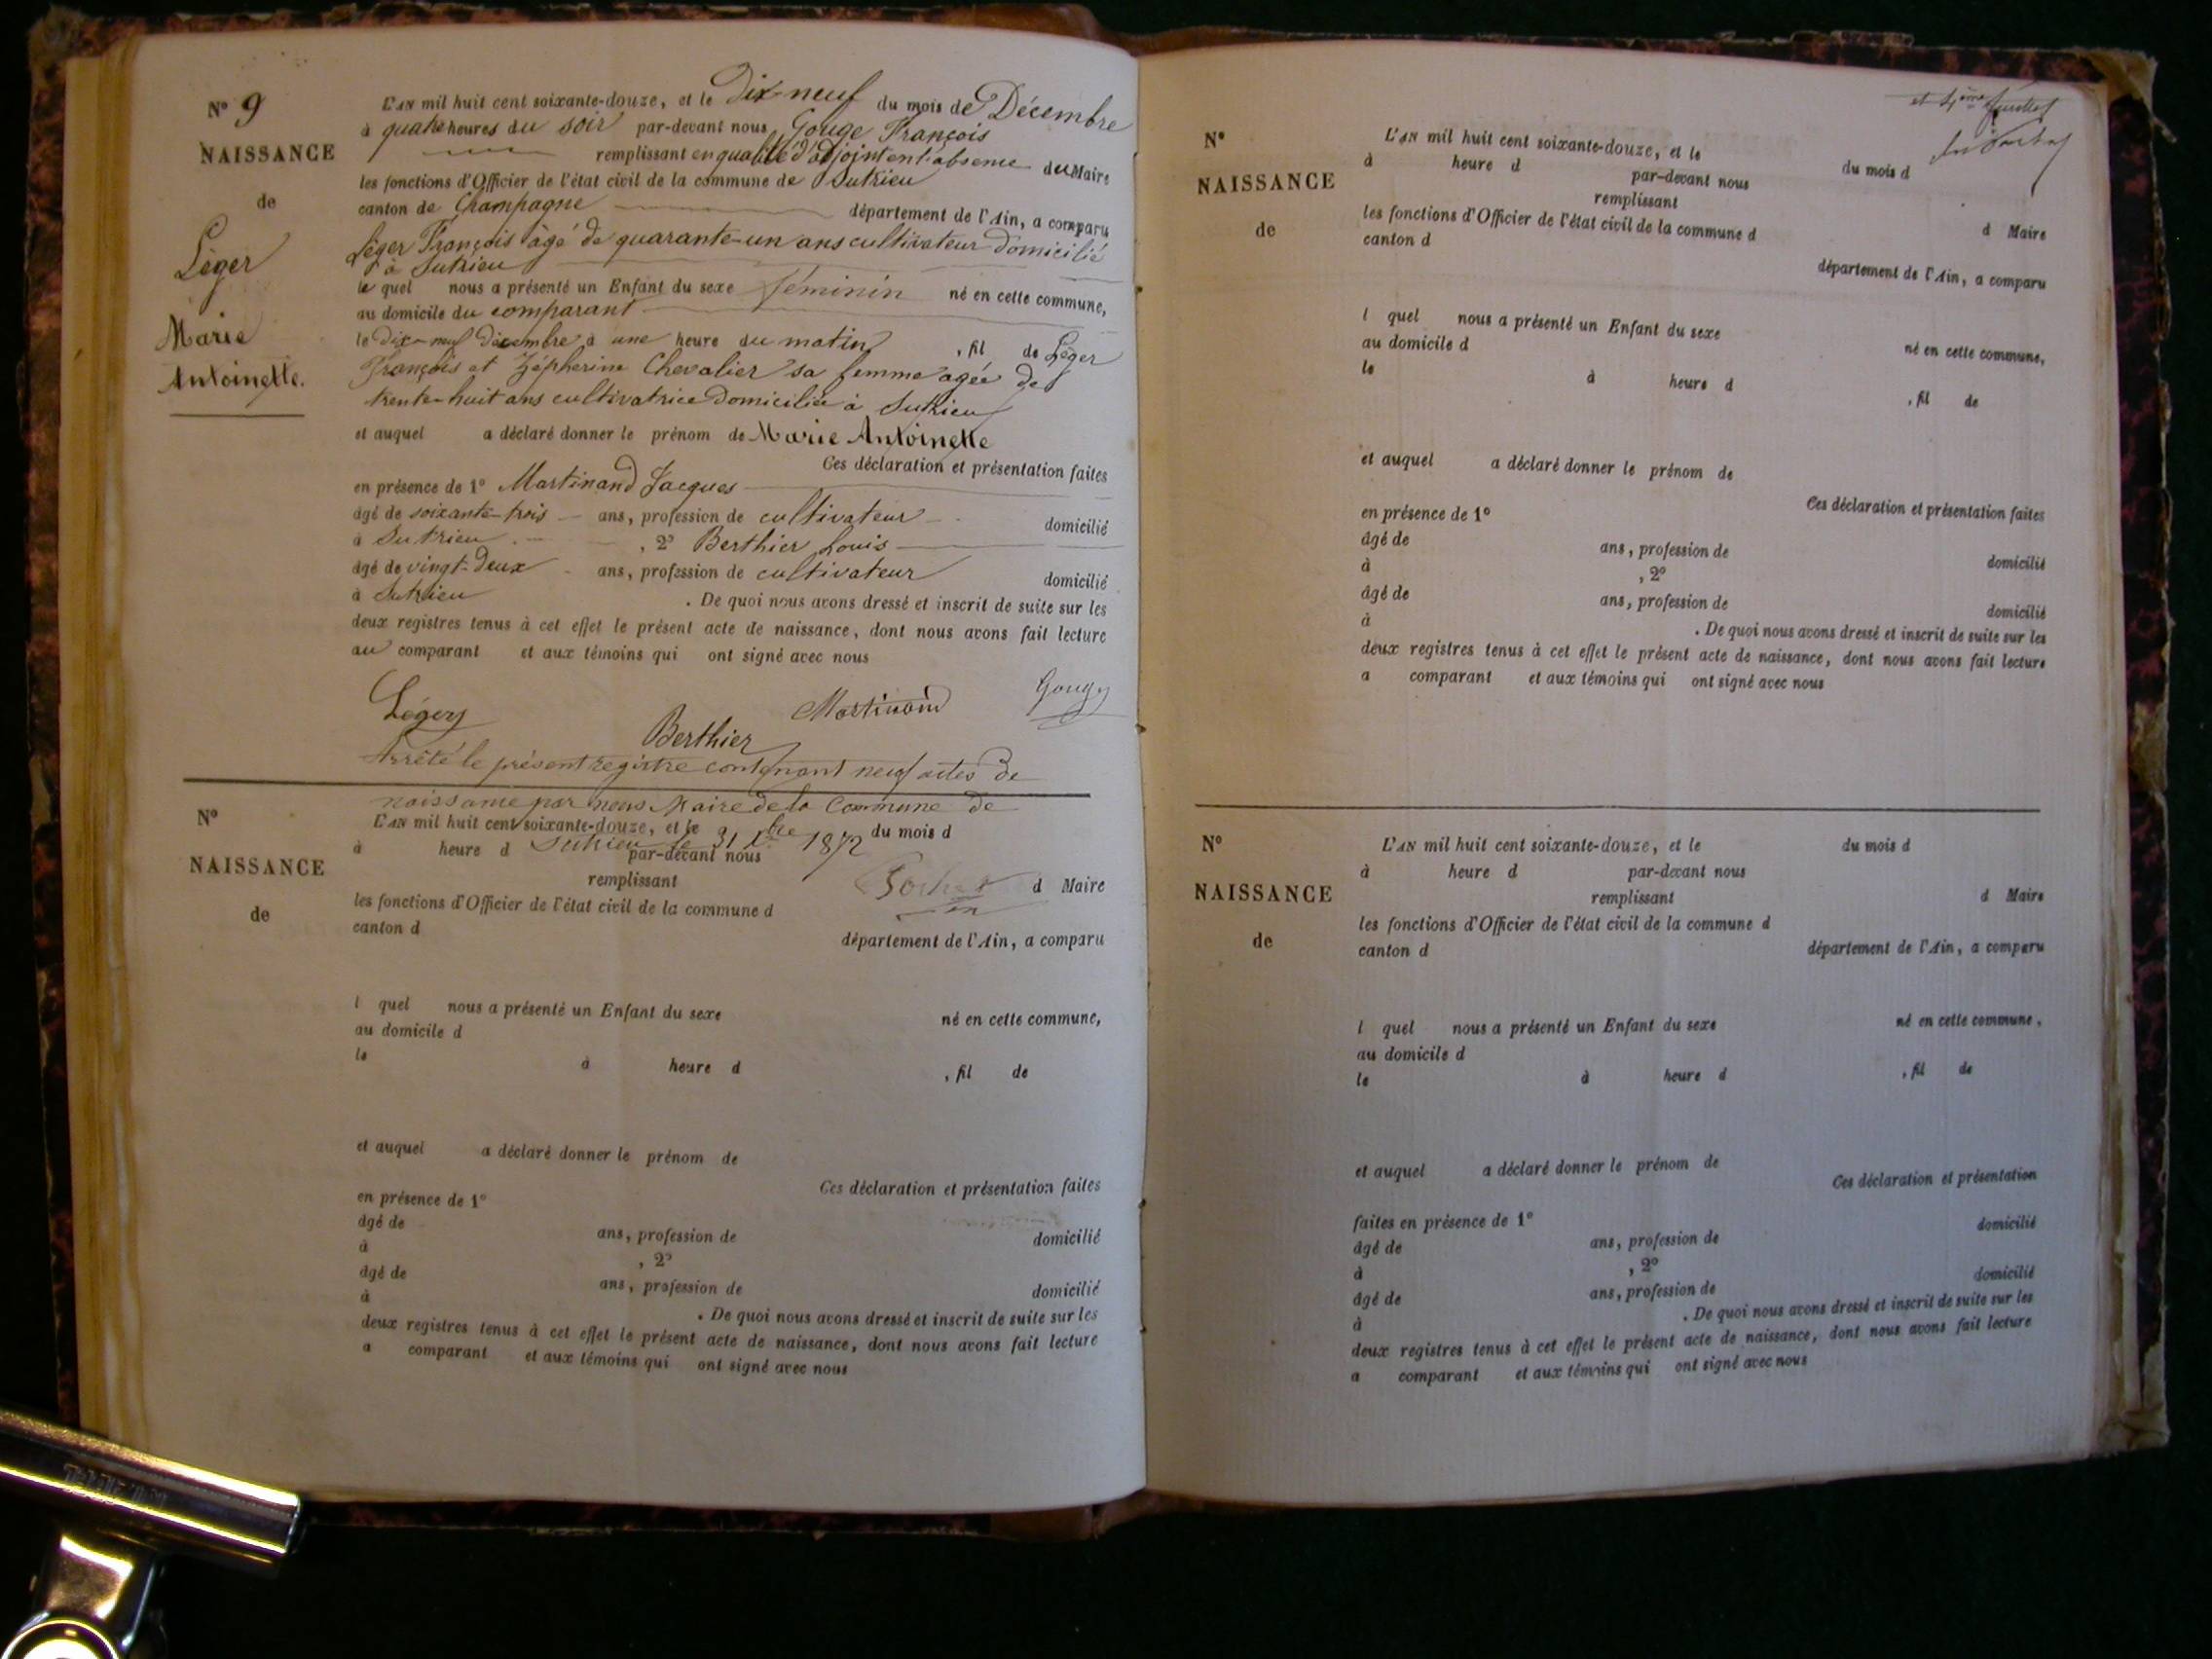 N° 9
NAISSANCE
de
Léger
Marie
Antoinette.
L'AN mil huit cent soixante-douze, et le Dix-neuf du mois de Décembre
à quatre heures du soir par-devant nous Gouge François
remplissant en qualité d'adjoint en l'absence du Maire
les fonctions d'Officier de l'état civil de la commune de Sutrieu
canton de Champagne département de l'Ain, a comparu
Léger François âgé de quarante-un ans cultivateur domicilié
à Sutrieu
le quel nous a présenté un Enfant du sexe féminin né en cette commune,
au domicile du comparant
le dix-neuf décembre à une heure du matin, fil de Léger
François et Zépherine Chevalier sa femme agée de
trente-huit ans cultivatrice domiciliée à Sutrieu
et auquel a déclaré donner le prénom de Marie Antoinette
Ces déclaration et présentation faites
en présence de 1° Martinand Jacques
âgé de soixante-trois ans, profession de cultivateur domicilié
à Sutrieu, 2° Berthier Louis
âgé de vingt-deux ans, profession de cultivateur domicilié
à Sutrieu. De quoi nous avons dressé et inscrit de suite sur les
deux registres tenus à cet effet le présent acte de naissance, dont nous avons fait lecture
au comparant et aux témoins qui ont signé avec nous
Léger Martinand Gouge
Berthier
Arrêté le présent registre contenant neuf actes de
naissance par nous Maire de la Commune de
Sutrieu le 31 Xbre 1872
N°
NAISSANCE
de
L'AN mil huit cent soixante-douze, et le du mois d
à heure d par-devant nous
remplissant d Maire
les fonctions d'Officier de l'état civil de la commune d
canton d
département de l'Ain, a comparu
l quel nous a présenté un Enfant du sexe né en cette commune,
au domicile d
le à heure d , fil de
et auquel a déclaré donner le prénom de
Ces déclaration et présentation faites
en présence de 1°
âgé de ans, profession de domicilié
à , 2°
âgé de ans, profession de domicilié
à . De quoi nous avons dressé et inscrit de suite sur les
deux registres tenus à cet effet le présent acte de naissance, dont nous avons fait lecture
a comparant et aux témoins qui ont signé avec nous
N°
NAISSANCE
de
L'AN mil huit cent soixante-douze, et le du mois d
à heure d par-devant nous
remplissant d Maire
les fonctions d'Officier de l'état civil de la commune d
canton d
département de l'Ain, a comparu
l quel nous a présenté un Enfant du sexe né en cette commune,
au domicile d
le à heure d , fil de
et auquel a déclaré donner le prénom de
Ces déclaration et présentation faites
en présence de 1°
âgé de ans, profession de domicilié
à , 2°
âgé de ans, profession de domicilié
à . De quoi nous avons dressé et inscrit de suite sur les
deux registres tenus à cet effet le présent acte de naissance, dont nous avons fait lecture
a comparant et aux témoins qui ont signé avec nous
N°
NAISSANCE
de
L'AN mil huit cent soixante-douze, et le du mois d
à heure d par-devant nous
remplissant d Maire
les fonctions d'Officier de l'état civil de la commune d
canton d département de l'Ain, a comparu
l quel nous a présenté un Enfant du sexe né en cette commune,
au domicile d
le à heure d , fil de
et auquel a déclaré donner le prénom de
Ces déclaration et présentation
faites en présence de 1°
âgé de ans, profession de domicilié
à , 2°
âgé de ans, profession de domicilié
à . De quoi nous avons dressé et inscrit de suite sur les
deux registres tenus à cet effet le présent acte de naissance, dont nous avons fait lecture
a comparant et aux témoins qui ont signé avec nous